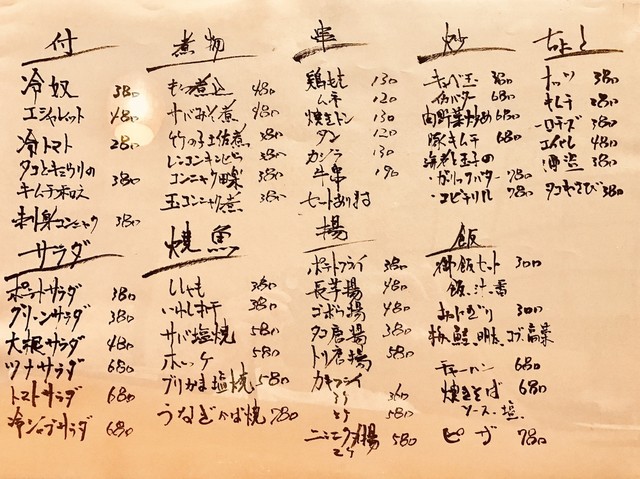 付
冷奴 380
エシャレット 480
冷トマト 280
タコときゅうりの
キムチポン酢 380
刺身コンニャク 380
煮物
もつ煮込 480
サバみそ煮 480
竹の子土佐煮 380
レンコンキンピラ 380
コンニャク田楽 380
玉コンニャク煮 380
串
鶏もも 130
ムネ 120
焼きトン 130
タン 120
カシラ 130
牛串 190
セットあります
炒
キャベ玉 380
イカバター 680
肉野菜炒め 680
豚キムチ 680
海老と玉子の
ガーリックバター 780
エビチリ 780
ちょっと
ナッツ 380
キムチ 280
チーズ 380
エイヒレ 480
380
タコわさび 380
サラダ
ポテトサラダ 380
グリーンサラダ 380
大根サラダ 480
ツナサラダ 680
トマトサラダ 680
冷シャブサラダ 680
焼魚
ししゃも 380
いわし丸干 380
サバ塩焼 580
ホッケ 580
ブリかま塩焼 580
うなぎかば焼 780
揚
ポテトフライ 380
長芋揚 480
ゴボウ揚 480
タコ唐揚 380
トリ唐揚 580
カキフライ
360
580
ニンニク揚 580
飯
御飯セット 300
飯、汁、香
おにぎり 300
梅、鮭、明太、コブ、高菜
チャーハン 680
焼きそば 680
ソース、塩
ピザ 780